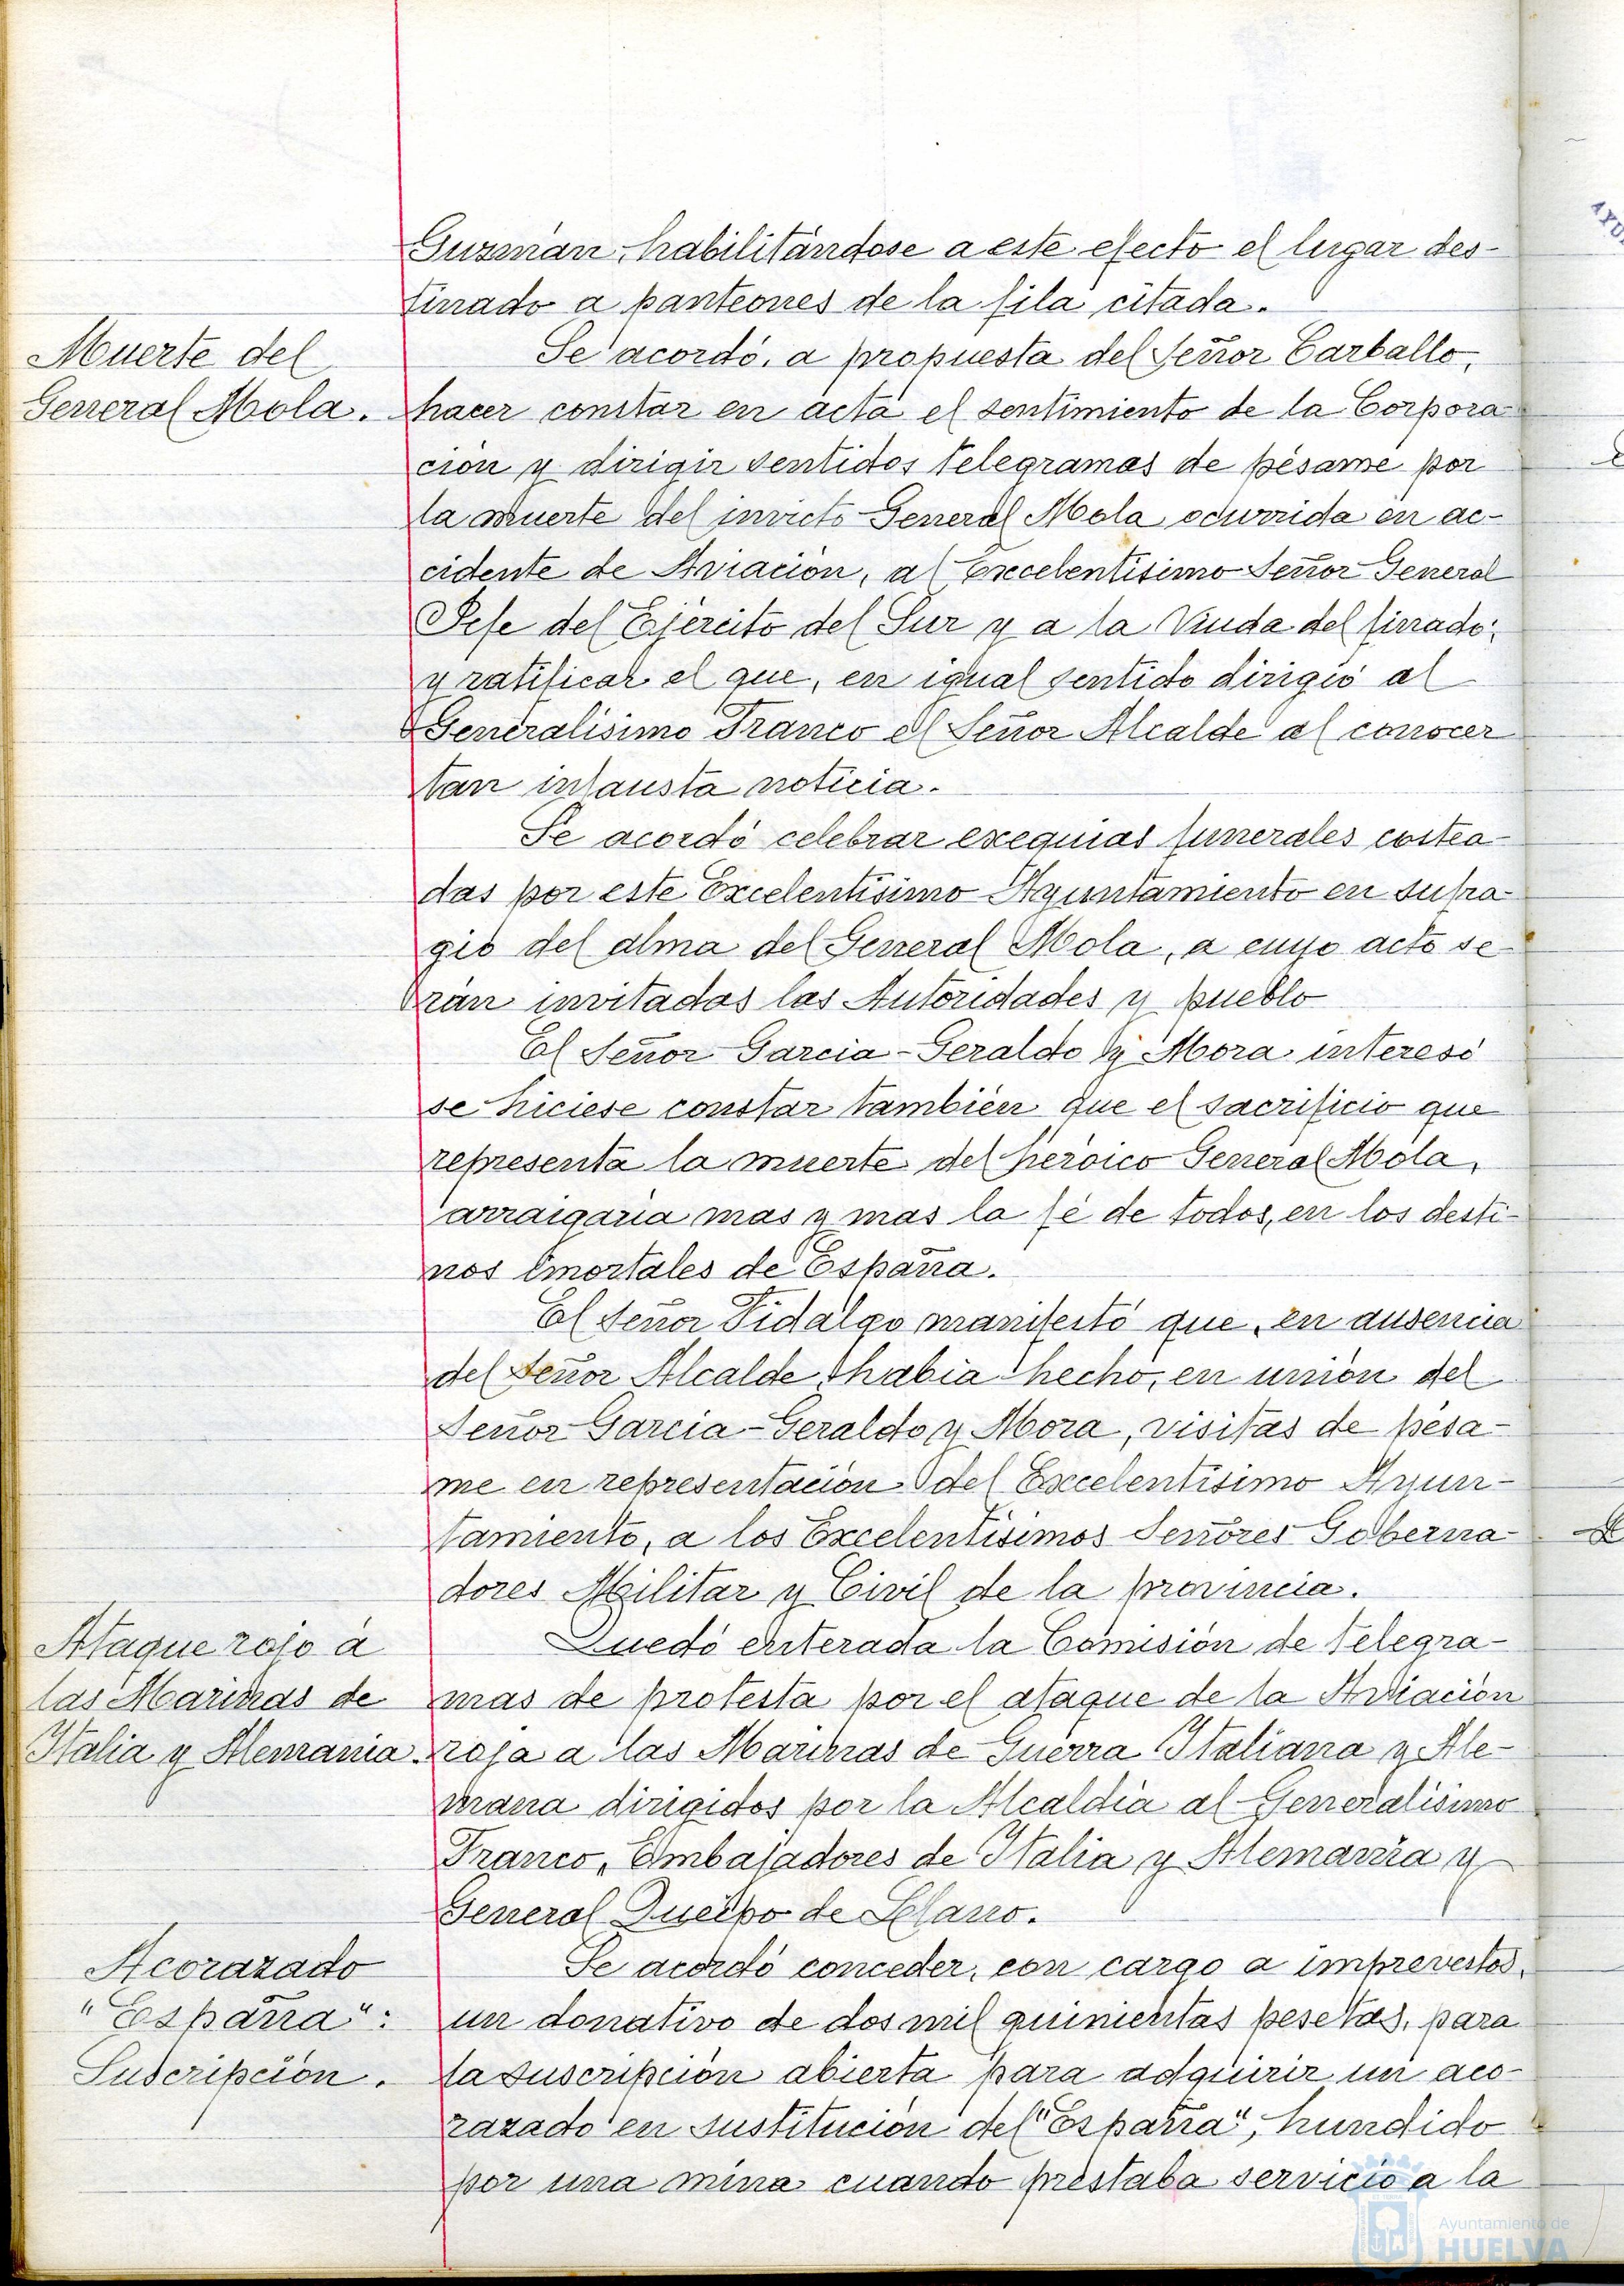 Guzmán, habilitándose a este efecto el lugar des-
tinado a panteones de la fila citada.
Muerte del
General Mola.
Se acordó, a propuesta del Señor Carballo,
hacer constar en acta el sentimiento de la Corpora-
ción y dirigir sentidos telegramas de pésame por
la muerte del invicto General Mola ocurrida en ac-
cidente de Aviación, al Excelentísimo Señor General
Jefe del Ejército del Sur y a la Viuda del finado;
y ratificar el que, en igual sentido dirigió al
Generalísimo Franco el Señor Alcalde al conocer
tan infausta noticia.
Se acordó celebrar exequias funerales costea-
das por este Excelentísimo Ayuntamiento en sufra-
gio del alma del General Mola, a cuyo acto se-
rán invitadas las Autoridades y pueblo
El Señor Garcia-Geraldo y Mora interesó
se hiciese constar también que el sacrificio que
representa la muerte del heróico General Mola,
arraigaria mas y mas la fé de todos, en los desti-
nos inmortales de España.
El Señor Fidalgo manifestó que, en ausencia
del Señor Alcalde, habia hecho, en unión del
Señor Garcia-Geraldo y Mora, visitas de pésa-
me en representación del Excelentísimo Ayun-
tamiento, a los Excelentísimos Señores Goberna-
dores Militar y Civil de la provincia.
Ataque rojo á
las Marinas de
Italia y Alemania.
Quedó enterada la Comisión de telegra-
mas de protesta por el ataque de la Aviación
roja a las Marinas de Guerra Italiana y Ale-
mana dirigidos por la Alcaldia al Generalísimo
Franco, Embajadores de Italia y Alemania y
General Queipo de Llano.
Acorazado
"España":
Suscripción.
Se acordó conceder, con cargo a imprevistos,
un donativo de dos mil quinientas pesetas, para
la suscripción abierta para adquirir un aco-
razado en sustitución del "España", hundido
por una mina cuando prestaba servicio a la
Ayuntamiento de
HUELVA